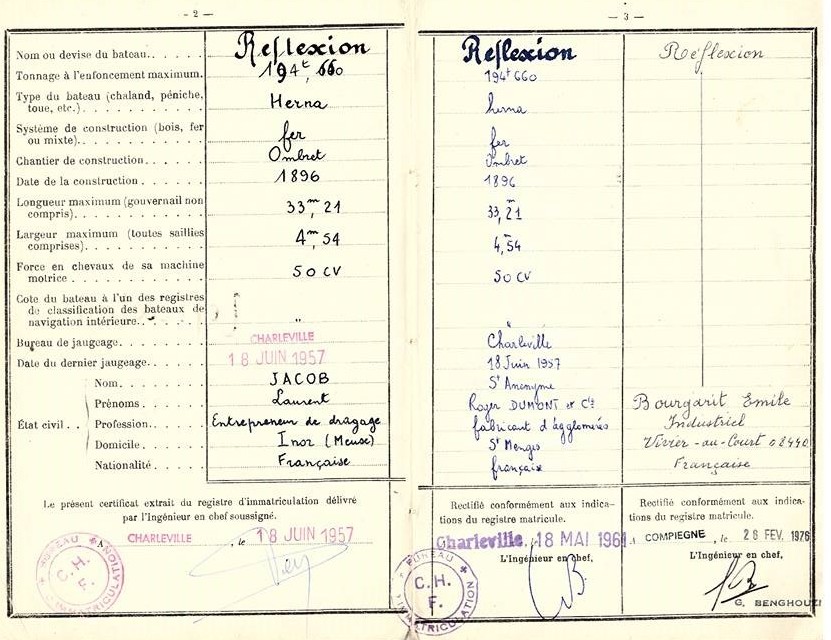 - 2 -
Nom ou devise du bateau. . . . . Reflexion
Tonnage à l'enfoncement maximum. 194ᵗ,660
Type du bateau (chaland, péniche,
toue, etc.) . . . . . . . . . . Herna
Système de construction (bois, fer
ou mixte). . . . . . . . . . . fer
Chantier de construction. . . . . . Ombret
Date de la construction . . . . . . 1896
Longueur maximum (gouvernail non
compris). . . . . . . . . . . 33ᵐ,21
Largeur maximum (toutes saillies
comprises). . . . . . . . . . 4ᵐ,54
Force en chevaux de sa machine
motrice. . . . . . . . . . . 50 CV
Cote du bateau à l'un des registres
de classification des bateaux de
navigation intérieure. . . . . . "
Bureau de jaugeage. . . . . . . . CHARLEVILLE
Date du dernier jaugeage. . . . . . 18 JUIN 1957
État civil . .
Nom. . . . . . . JACOB
Prénoms. . . . . Laurent
Profession. . . . Entrepreneur de dragage
Domicile. . . . . Inor (Meuse)
Nationalité . . . . Française
Le présent certificat extrait du registre d'immatriculation délivré
par l'Ingénieur en chef soussigné.
A CHARLEVILLE , le 18 JUIN 1957
BUREAU D'IMMATRICULATION
C. H.
F.
- 3 -
Reflexion
194ᵗ660
herna
fer
Ombret
1896
33ᵐ,21
4ᵐ,54
50 CV
"
Charleville
18 Juin 1957
Sᵗ Anonyme
Roger DUMONT et Cⁱᵉ
fabricant d'agglomérés
Sᵗ Menges
française
Rectifié conformément aux indica-
tions du registre matricule.
Charleville, 18 MAI 1961
L'Ingénieur en chef,
BUREAU D'IMMATRICULATION
C. H.
F.
Réflexion
Bourgarit Emile
Industriel
Vivier-au-Court 08440
Française
Rectifié conformément aux indica-
tions du registre matricule.
A COMPIEGNE , le 26 FEV. 1976
L'Ingénieur en chef,
G. BENGHOUZI